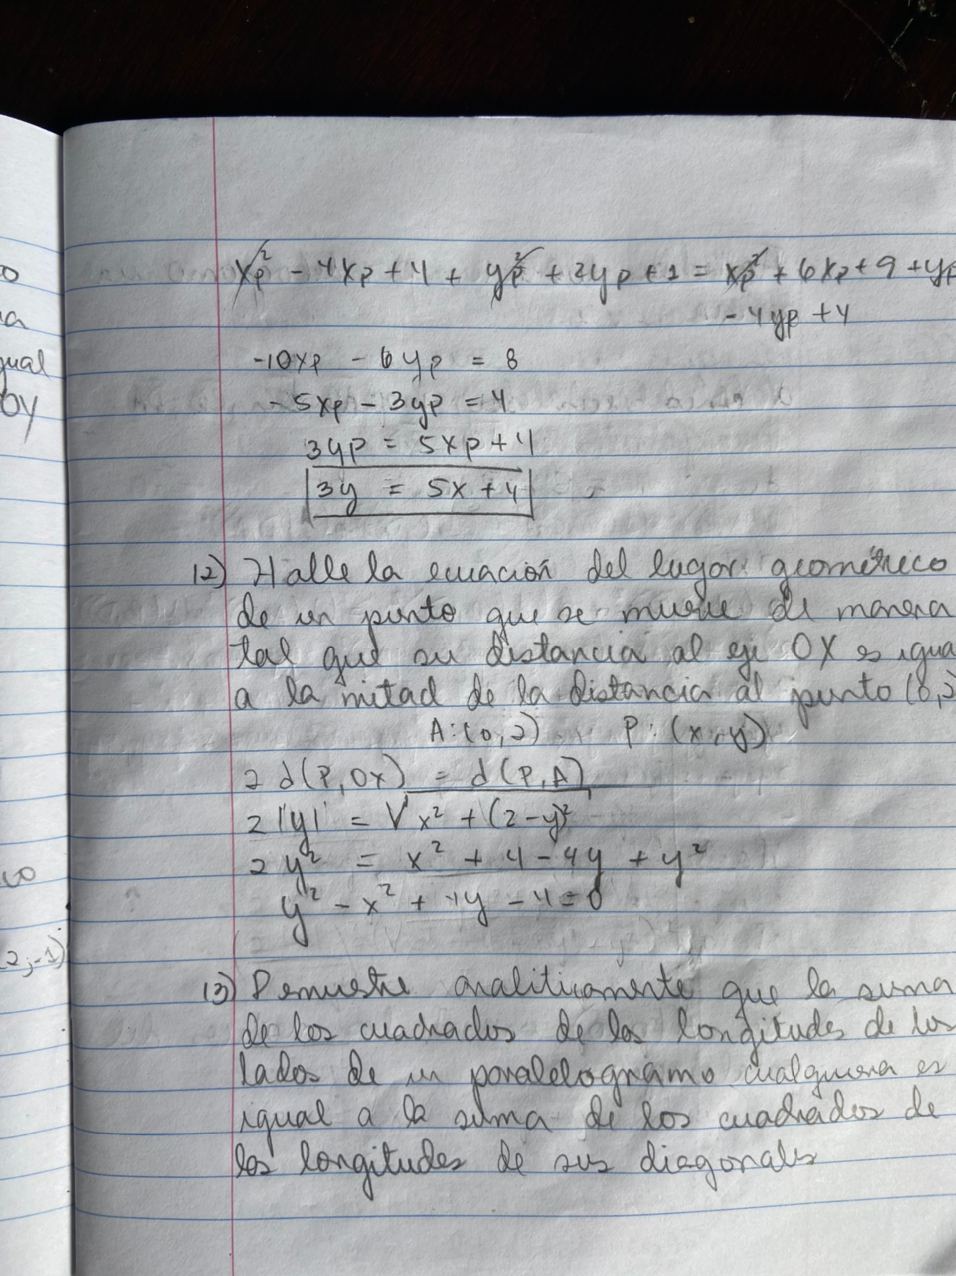 o
xp² - 4xp + 4 + yp² + 2yp + 1 = xp² + 6xp + 9 + yp
na
- 4yp + 4
gual
-10xp - 6yp = 8
oy
- 5xp - 3yp = 4
3yp = 5xp + 4
3y = 5x + 4
12) Halle la ecuación del lugar geométrico
de un punto que se mueve de manera
tal que su distancia al eje OX es igua
a la mitad de la distancia al punto (0,2
A:(0,2) P:(x,y)
2 d(P,OX) = d(P,A)
2|y| = √x² + (2-y)²
2y² = x² + 4 - 4y + y²
y² - x² + 4y - 4 = 0
2,-1)
13) Demuestre analiticamente que la suma
de los cuadrados de las longitudes de los
lados de un paralelogramo cualquiera es
igual a la suma de los cuadrados de
las longitudes de sus diagonales